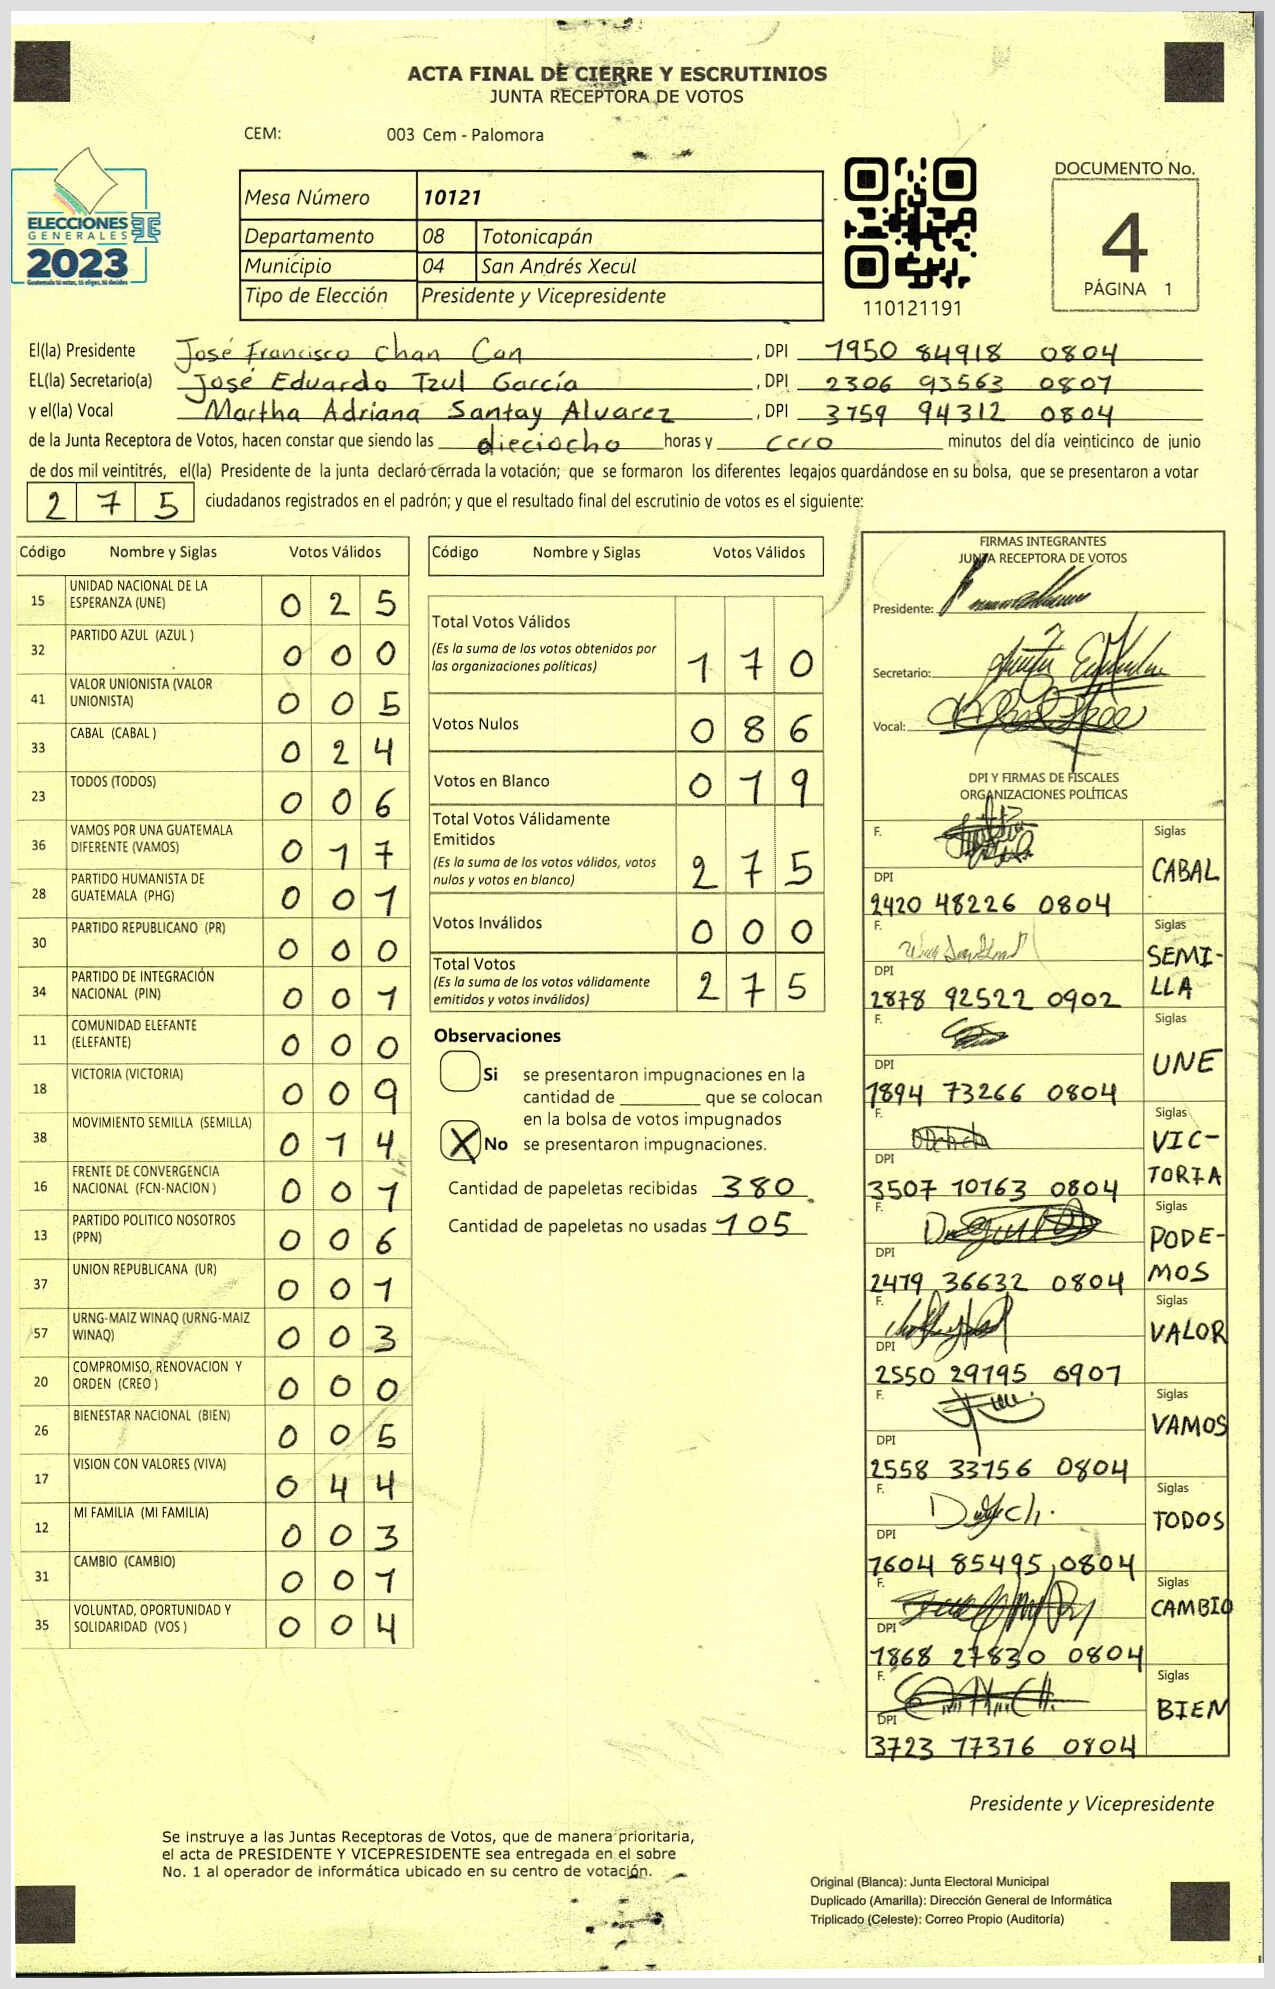 ACTA FINAL DE CIERRE Y ESCRUTINIOS
JUNTA RECEPTORA DE VOTOS
CEM: 003 Cem - Palomora
ELECCIONES
GENERALES
2023
Guatemala tú votas, tú eliges, tú decides
Mesa Número 10121
Departamento 08 Totonicapán
Municipio 04 San Andrés Xecul
Tipo de Elección Presidente y Vicepresidente
110121191
DOCUMENTO No.
4
PÁGINA 1
El(la) Presidente José Francisco Chan Can , DPI 1950 84918 0804
EL(la) Secretario(a) José Eduardo Tzul García , DPI 2306 93563 0807
y el(la) Vocal Martha Adriana Santay Alvarez , DPI 3759 94312 0804
de la Junta Receptora de Votos, hacen constar que siendo las dieciocho horas y cero minutos del día veinticinco de junio
de dos mil veintitrés, el(la) Presidente de la junta declaró cerrada la votación; que se formaron los diferentes legajos guardándose en su bolsa, que se presentaron a votar
275 ciudadanos registrados en el padrón; y que el resultado final del escrutinio de votos es el siguiente:
Código Nombre y Siglas Votos Válidos
15 UNIDAD NACIONAL DE LA ESPERANZA (UNE) 025
32 PARTIDO AZUL (AZUL ) 000
41 VALOR UNIONISTA (VALOR UNIONISTA) 005
33 CABAL (CABAL ) 024
23 TODOS (TODOS) 006
36 VAMOS POR UNA GUATEMALA DIFERENTE (VAMOS) 017
28 PARTIDO HUMANISTA DE GUATEMALA (PHG) 001
30 PARTIDO REPUBLICANO (PR) 000
34 PARTIDO DE INTEGRACIÓN NACIONAL (PIN) 001
11 COMUNIDAD ELEFANTE (ELEFANTE) 000
18 VICTORIA (VICTORIA) 009
38 MOVIMIENTO SEMILLA (SEMILLA) 014
16 FRENTE DE CONVERGENCIA NACIONAL (FCN-NACION ) 001
13 PARTIDO POLITICO NOSOTROS (PPN) 006
37 UNION REPUBLICANA (UR) 001
57 URNG-MAIZ WINAQ (URNG-MAIZ WINAQ) 003
20 COMPROMISO, RENOVACION Y ORDEN (CREO ) 000
26 BIENESTAR NACIONAL (BIEN) 005
17 VISION CON VALORES (VIVA) 044
12 MI FAMILIA (MI FAMILIA) 003
31 CAMBIO (CAMBIO) 001
35 VOLUNTAD, OPORTUNIDAD Y SOLIDARIDAD (VOS ) 004
Código Nombre y Siglas Votos Válidos
Total Votos Válidos
(Es la suma de los votos obtenidos por
las organizaciones políticas) 170
Votos Nulos 086
Votos en Blanco 019
Total Votos Válidamente
Emitidos
(Es la suma de los votos válidos, votos
nulos y votos en blanco) 275
Votos Inválidos 000
Total Votos
(Es la suma de los votos válidamente
emitidos y votos inválidos) 275
Observaciones
Si se presentaron impugnaciones en la
cantidad de ________ que se colocan
en la bolsa de votos impugnados
X No se presentaron impugnaciones.
Cantidad de papeletas recibidas 380
Cantidad de papeletas no usadas 105
FIRMAS INTEGRANTES
JUNTA RECEPTORA DE VOTOS
Presidente:
Secretario:
Vocal:
DPI Y FIRMAS DE FISCALES
ORGANIZACIONES POLÍTICAS
F. Siglas
CABAL
DPI
2420 48226 0804
F. Siglas
SEMI-
LLA
DPI
2878 92522 0902
F. Siglas
UNE
DPI
1894 73266 0804
F. Siglas
VIC-
TORIA
DPI
3507 10163 0804
F. Siglas
PODE-
MOS
DPI
2479 36632 0804
F. Siglas
VALOR
DPI
2550 29195 0907
F. Siglas
VAMOS
DPI
2558 33156 0804
F. Siglas
TODOS
DPI
1604 85495 0804
F. Siglas
CAMBIO
DPI
1868 27830 0804
F. Siglas
BIEN
DPI
3723 17376 0804
Presidente y Vicepresidente
Se instruye a las Juntas Receptoras de Votos, que de manera prioritaria,
el acta de PRESIDENTE Y VICEPRESIDENTE sea entregada en el sobre
No. 1 al operador de informática ubicado en su centro de votación.
Original (Blanca): Junta Electoral Municipal
Duplicado (Amarilla): Dirección General de Informática
Triplicado (Celeste): Correo Propio (Auditoría)